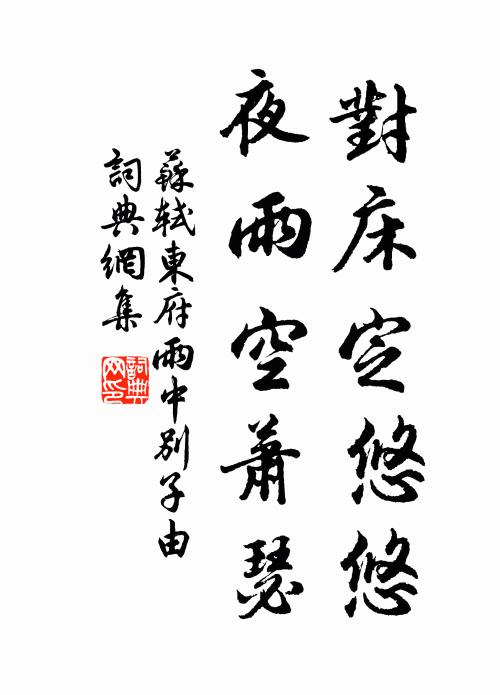 對床定悠悠
夜雨空蕭瑟
蘇軾東府雨中別子由
詞典網集
詞典
网印